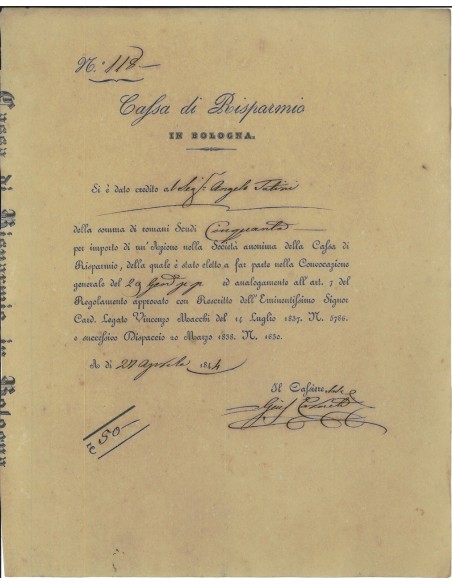 N.° 112
Cassa di Risparmio
IN BOLOGNA.
Si è dato credito al Sig.r Angelo
della somma di romani Scudi Cinquanta
per importo di un'Azione nella Società anonima della Cassa di
Risparmio, della quale è stato eletto a far parte nella Convocazione
generale del 29 ed analogamente all'art. 7 del
Regolamento approvato con Rescritto dell'Eminentissimo Signor
Card. Legato Vincenzo Macchi del 14 Luglio 1837. N. 5786.
e successivo Dispaccio 20 Marzo 1838. N. 1830.
A dì 27 1844
Il Cassiere
50
Cassa di Risparmio in Bologna